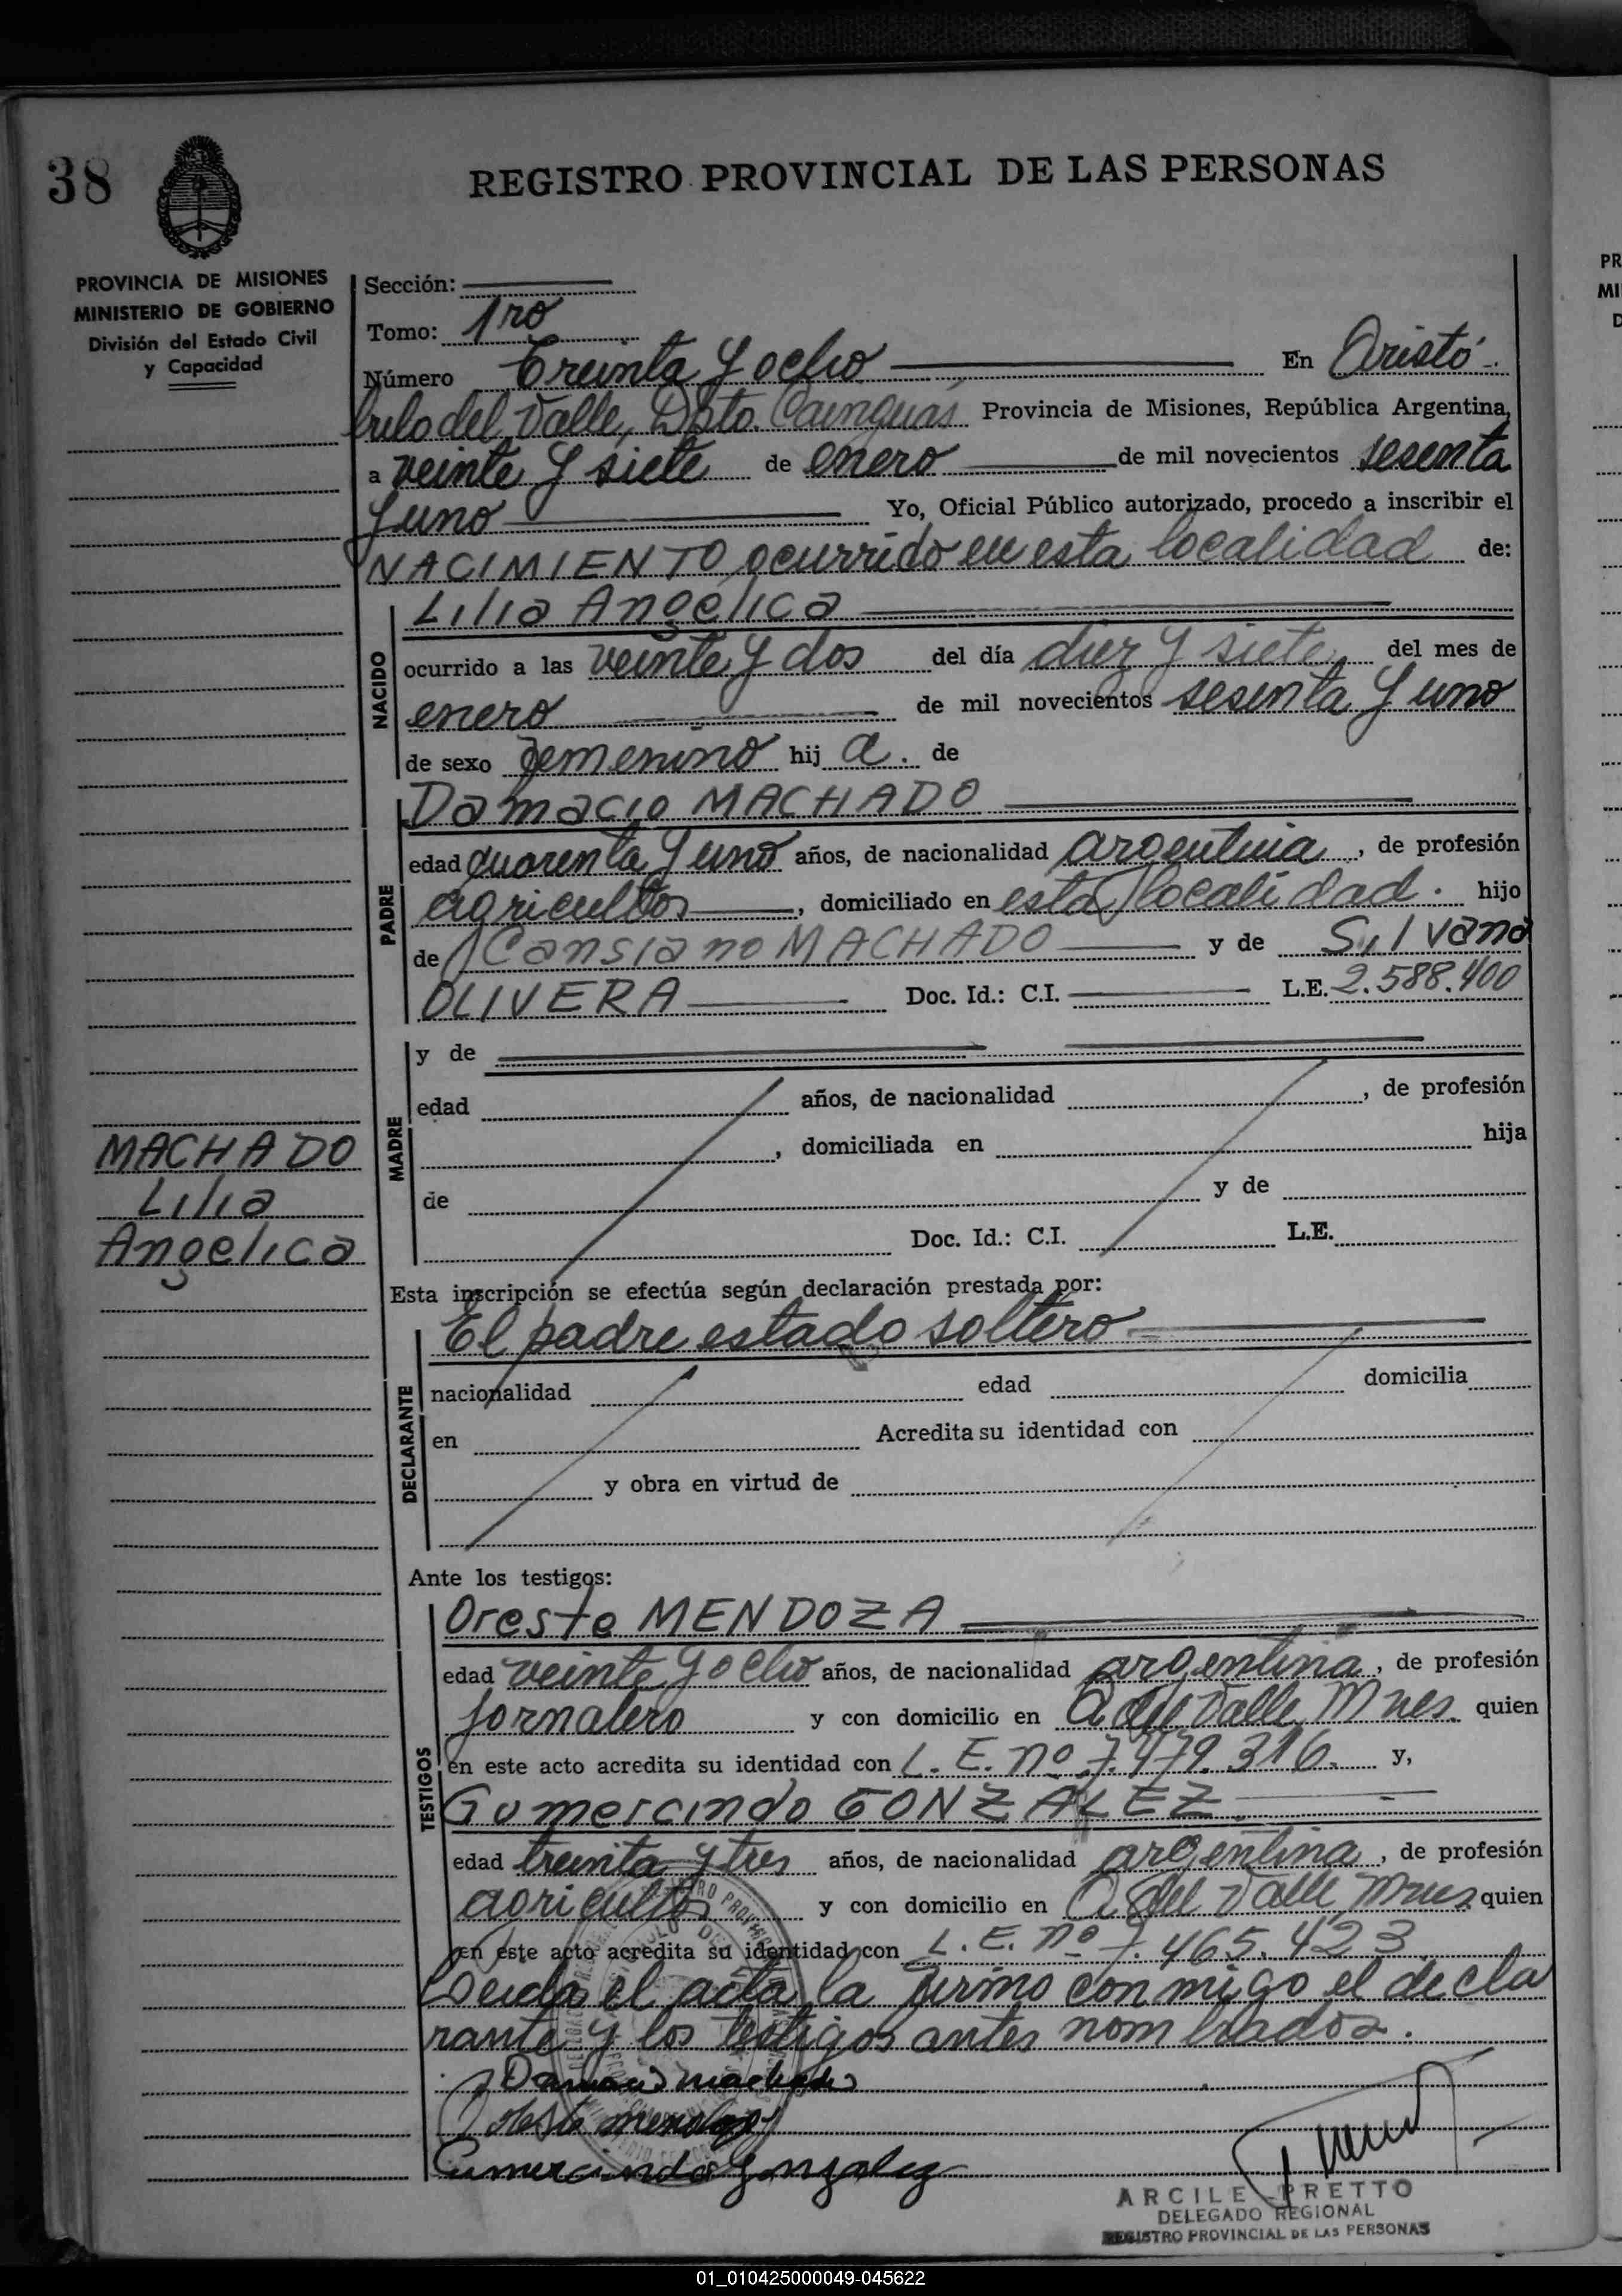 38
REGISTRO PROVINCIAL DE LAS PERSONAS
PROVINCIA DE MISIONES
MINISTERIO DE GOBIERNO
División del Estado Civil
y Capacidad
Sección:
Tomo: 1ro
Número Treinta y ocho En Aristó
bulo del Valle, Dpto. Cainguás Provincia de Misiones, República Argentina,
a veinte y siete de enero de mil novecientos sesenta
y uno Yo, Oficial Público autorizado, procedo a inscribir el
NACIMIENTO ocurrido en esta localidad de:
NACIDO
Lilia Angelica
ocurrido a las veinte y dos del día diez y siete del mes de
enero de mil novecientos sesenta y uno
de sexo femenino hij a. de
PADRE
Damacio MACHADO
edad cuarenta y uno años, de nacionalidad argentina, de profesión
agricultor, domiciliado en esta localidad. hijo
de Cansiano MACHADO y de Silvana
OLIVERA Doc. Id.: C.I. L.E. 2.588.400
MADRE
y de
edad años, de nacionalidad , de profesión
, domiciliada en hija
de y de
Doc. Id.: C.I. L.E.
MACHADO
Lilia
Angelica
Esta inscripción se efectúa según declaración prestada por:
DECLARANTE
El padre estado soltero
nacionalidad edad domicilia
en Acredita su identidad con
y obra en virtud de
Ante los testigos:
TESTIGOS
Oreste MENDOZA
edad veinte y ocho años, de nacionalidad argentina, de profesión
jornalero y con domicilio en A. del Valle Mnes. quien
en este acto acredita su identidad con L. E. nº 7.479.316. y,
Gumercindo GONZALEZ
edad treinta y tres años, de nacionalidad argentina, de profesión
agricultor y con domicilio en A. del Valle Mnes. quien
en este acto acredita su identidad con L. E. nº 7.465.423
Leida el acta la firmo conmigo el decla
rante y los testigos antes nombrados.
Damacio Machado
Oreste mendoza
Gumercindo Gonzalez
ARCILE PRETTO
DELEGADO REGIONAL
REGISTRO PROVINCIAL DE LAS PERSONAS
01_010425000049-045622